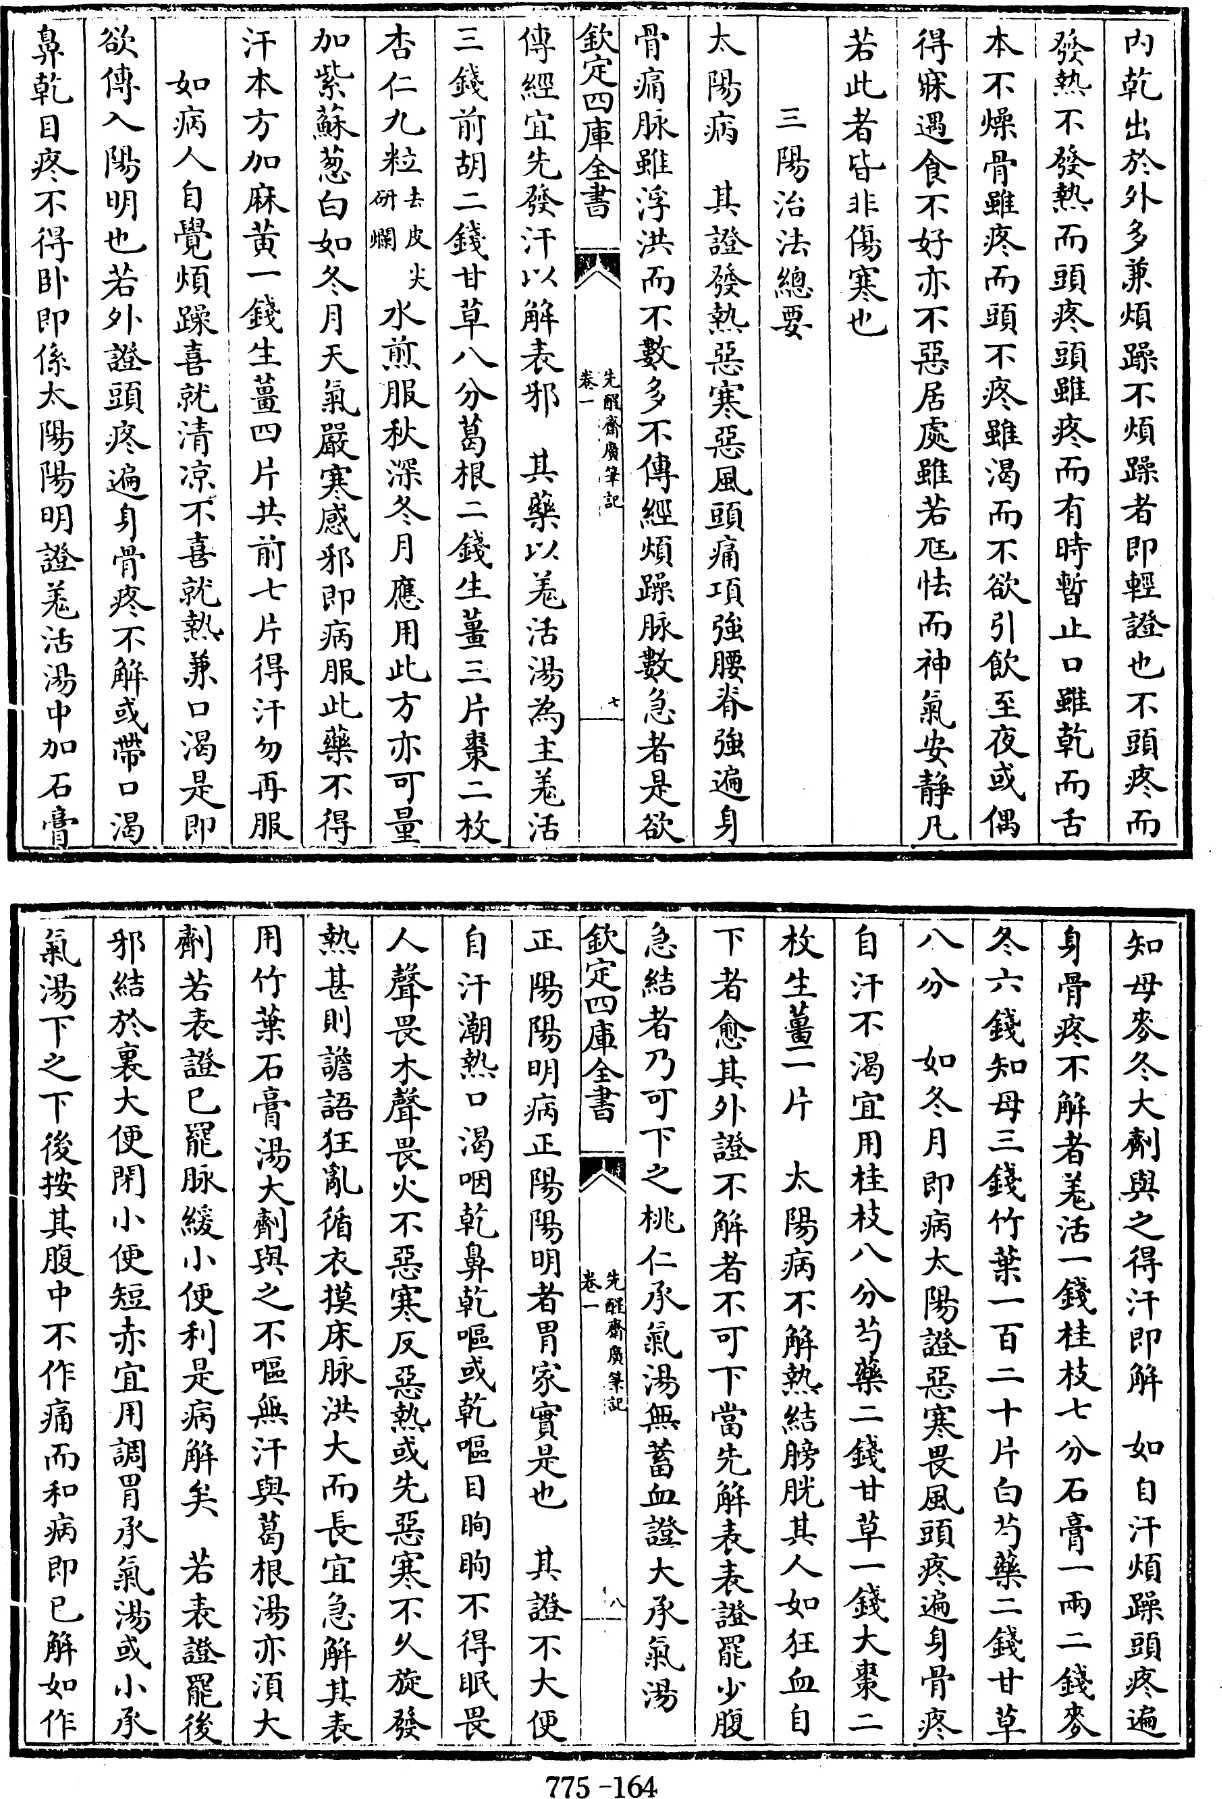 內乾出於外多兼煩躁不煩躁者即輕證也不頭疼而
發熱不發熱而頭疼頭雖疼而有時暫止口雖乾而舌
本不燥骨雖疼而頭不疼雖渴而不欲引飲至夜或偶
得寐遇食不好亦不惡居處雖若尫怯而神氣安靜凡
若此者皆非傷寒也
三陽治法總要
太陽病 其證發熱惡寒惡風頭痛項強腰脊強遍身
骨痛脉雖浮洪而不數多不傳經煩躁脉數急者是欲
欽定四庫全書
先醒齋廣筆記
卷一
七
傳經宜先發汗以解表邪 其藥以羗活湯為主羗活
三錢前胡二錢甘草八分葛根二錢生薑三片棗二枚
杏仁九粒去皮尖研爛水煎服秋深冬月應用此方亦可量
加紫蘇葱白如冬月天氣嚴寒感邪即病服此藥不得
汗本方加麻黃一錢生薑四片共前七片得汗勿再服
如病人自覺煩躁喜就清凉不喜就熱兼口渴是即
欲傳入陽明也若外證頭疼遍身骨疼不解或帶口渴
鼻乾目疼不得卧即係太陽陽明證羗活湯中加石膏
知母麥冬大劑與之得汗即解 如自汗煩躁頭疼遍
身骨疼不解者羗活一錢桂枝七分石膏一兩二錢麥
冬六錢知母三錢竹葉一百二十片白芍藥二錢甘草
八分 如冬月即病太陽證惡寒畏風頭疼遍身骨疼
自汗不渴宜用桂枝八分芍藥二錢甘草一錢大棗二
枚生薑一片 太陽病不解熱結膀胱其人如狂血自
下者愈其外證不解者不可下當先解表表證罷少腹
急結者乃可下之桃仁承氣湯無蓄血證大承氣湯
欽定四庫全書
先醒齋廣筆記
卷一
八
正陽陽明病正陽陽明者胃家實是也 其證不大便
自汗潮熱口渴咽乾鼻乾嘔或乾嘔目眴眴不得眠畏
人聲畏木聲畏火不惡寒反惡熱或先惡寒不久旋發
熱甚則譫語狂亂循衣摸床脉洪大而長宜急解其表
用竹葉石膏湯大劑與之不嘔無汗與葛根湯亦湏大
劑若表證已罷脉緩小便利是病解矣 若表證罷後
邪結於裏大便閉小便短赤宜用調胃承氣湯或小承
氣湯下之下後按其腹中不作痛而和病即已解如作
775-164